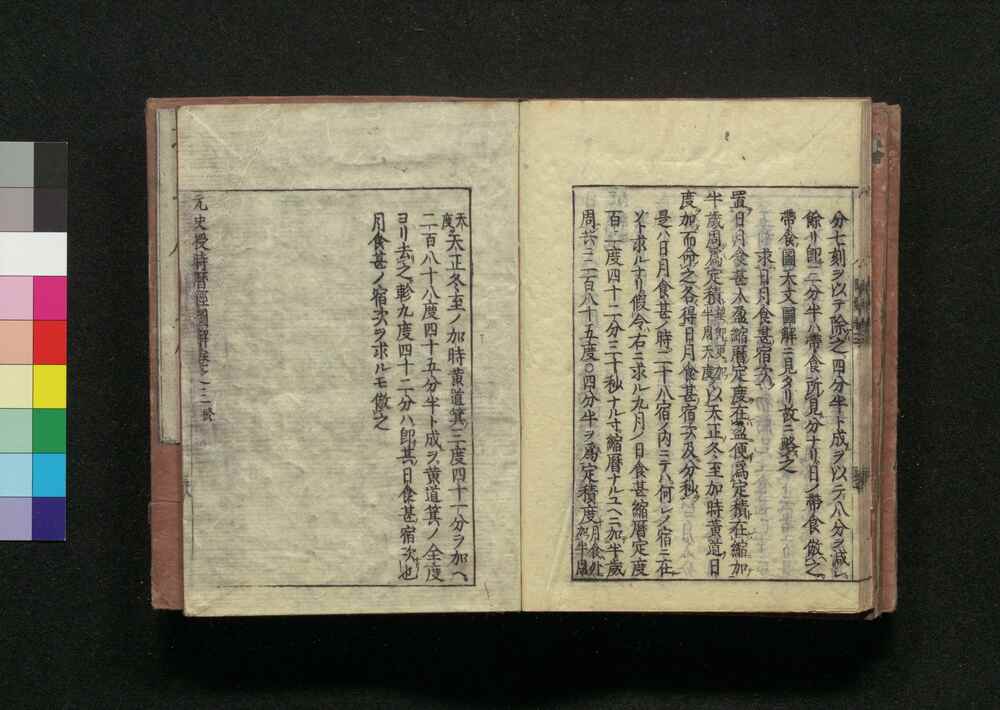 分七刻ヲ以テ除之四分半ト成ヲ以テ八分ヲ減シ
餘リ卽三分半ハ帶食所見分ナリ日ノ帶食倣之
帶食圖天文圖解ニ見タリ故ニ略之
求日月食甚宿次
置日月食甚入盈縮曆定度在盈便爲定積在縮加
半歲周爲定積以天正冬至加時黃道日
度加而命之各得日月食甚宿次及分秒
是ハ日月食甚ノ時二十八宿ノ内ニテハ何レノ宿ニ在
ソト求ルナリ假令右ニ求ル九月ノ日食甚縮曆定度
百二度四十二分三十秒ナル寸縮曆ナルユヘニ加半歲
周共ニ二百八十五度〇四分半ヲ爲定積度月食
天度天正冬至ノ加時黃道箕三度四十一分ヲ加ヘ
二百八十八度四十五分半ト成ヲ黃道箕ノ全度
ヨリ去之軫九度四十二分ハ卽其日食甚宿次也
月食甚ノ宿次ヲ求ルモ倣之
元史授時曆經圖解卷之三終